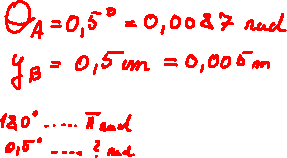 θA = 0,5° = 0,0087 rad
yB = 0,5 cm = 0,005 m
180° ..... π rad
0,5° .... ? rad